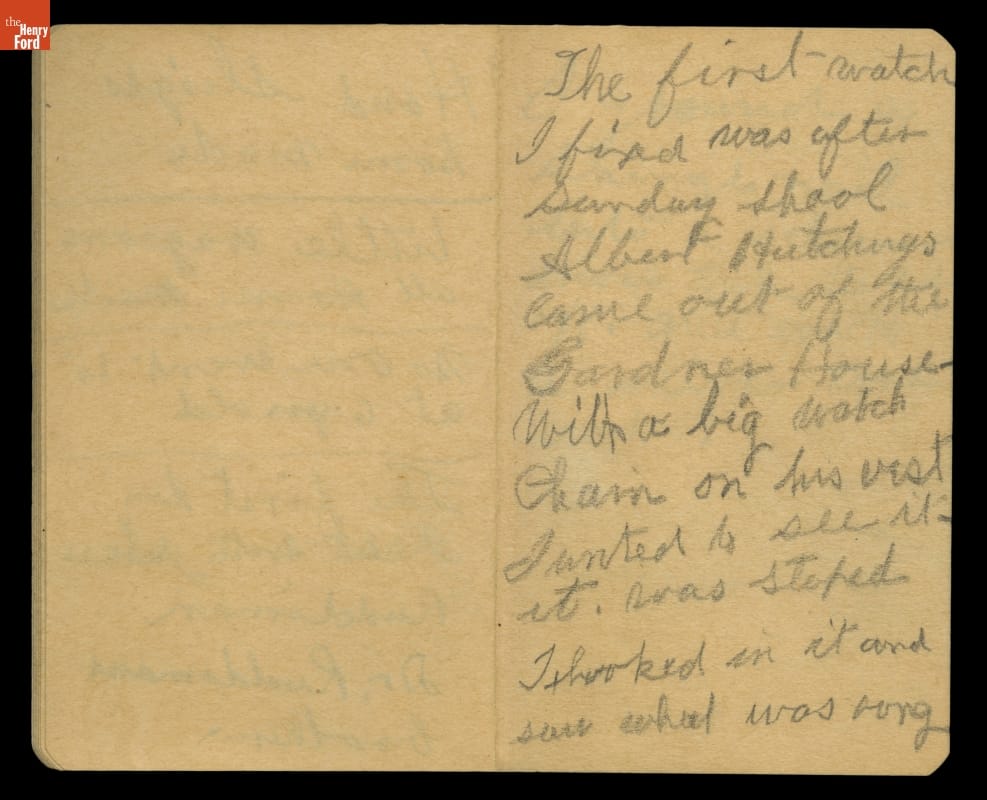 the
Henry
Ford
The first watch
I fixed was after
Sunday shool
Albert Hutchings
came out of the
Gardner House
With a big watch
Chain on his vest
I unted to see it
it. was stoped
I looked in it and
saw what was rong